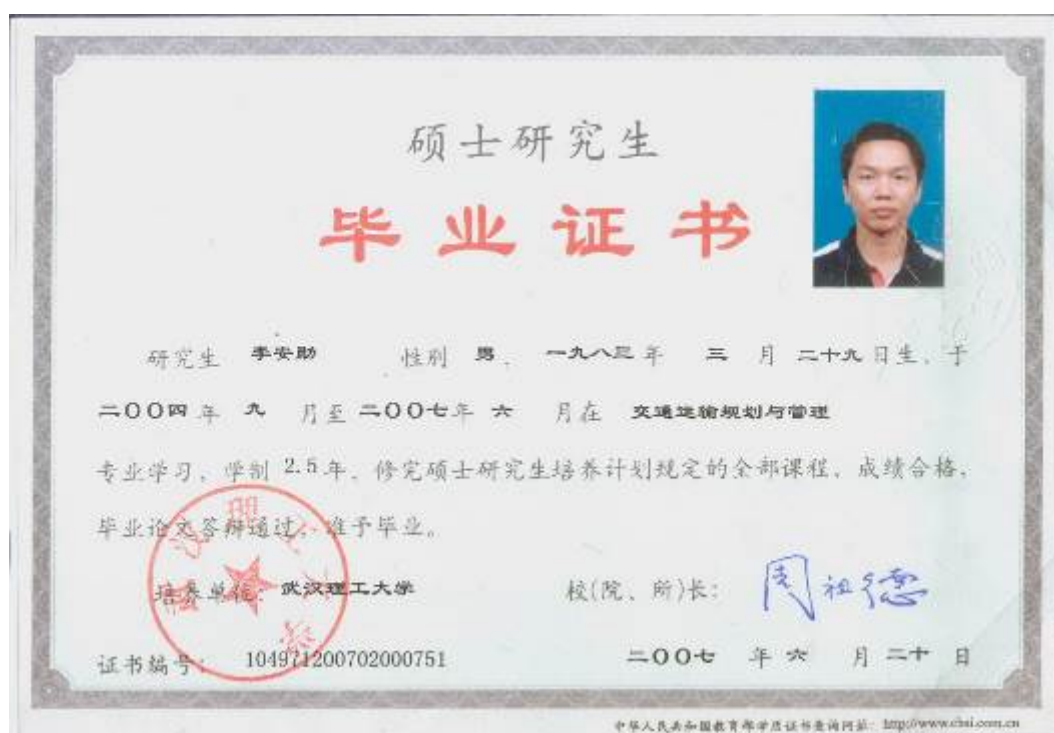 硕士研究生
毕业证书
研究生 李安助 性别 男, 一九八三 年 三 月 二十九 日生, 于
二〇〇四 年 九 月至 二〇〇七 年 六 月在 交通运输规划与管理
专业学习, 学制 2.5 年, 修完硕士研究生培养计划规定的全部课程, 成绩合格,
毕业论文答辩通过, 准予毕业。
培养单位: 武汉理工大学 校(院、所)长: 周祖德
证书编号: 104971200702000751 二〇〇七 年 六 月 二十 日
中华人民共和国教育部学历证书查询网址: http://www.chsi.com.cn